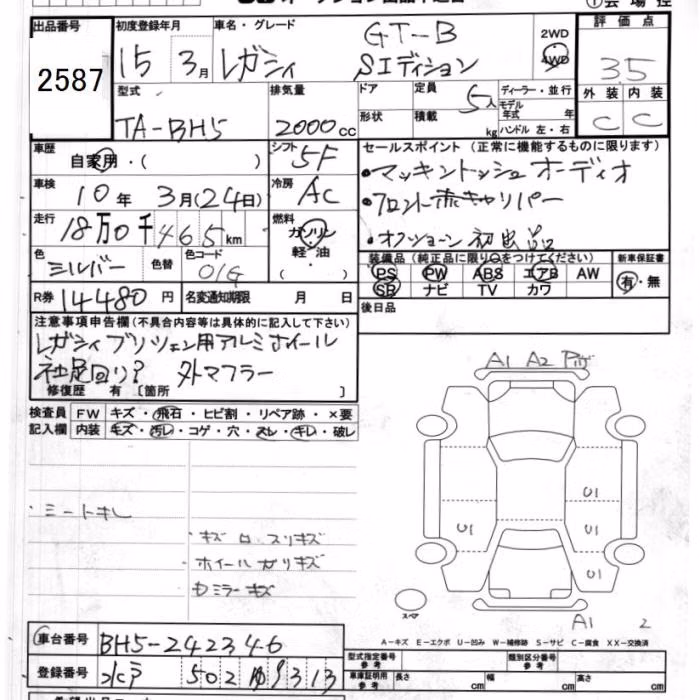 出品番号 初度登録年月 車名・グレード GT-B 2WD 評価点
2587 15 3月 レガシィ Sエディション 4WD 3.5
型式 排気量 ドア 定員 5人 ディーラー・並行 外装 内装
TA-BH5 2000cc 形状 積載 kg モデル年式 年 ハンドル 左・右 C C
車歴 自家用・( ) シフト 5F セールスポイント(正常に機能するものに限ります)
車検 10年 3月(24日) 冷房 AC ・マッキントッシュオーディオ
走行 18万0千465km 燃料 ガソリン・軽・油・( ) ・フロント赤キャリパー
・オークション初出品
色 シルバー 色替 色コード 01G 装備品(純正品に限り○をつけてください) 新車保証書
PS PW ABS エアB AW 有・無
R券 14480円 名変通知期限 月 日 SR ナビ TV カワ
後日品
注意事項申告欄(不具合内容等は具体的に記入して下さい)
レガシィブリッツェン用アルミホイール
社足回り? 外マフラー
修復歴 有 〔箇所 〕
A1 A2
検査員 FW キズ・飛石・ヒビ割・リペア跡・×要
記入欄 内装 キズ・汚レ・コゲ・穴・スレ・キレ・破レ
U1
U1 U1
・シートキレ
・キズ ロ スリキズ
U1
・ホイールガリキズ
・ドミラーキズ
スペア
A1 2
車台番号 BH5-242346
A-キズ E-エクボ U-凹み W-補修跡 S-サビ C-腐食 XX-交換済
登録番号 水戸 502 9313
型式指定番号 参考 類別区分番号 参考
車庫証明用 参考 長さ cm 幅 cm 高さ cm